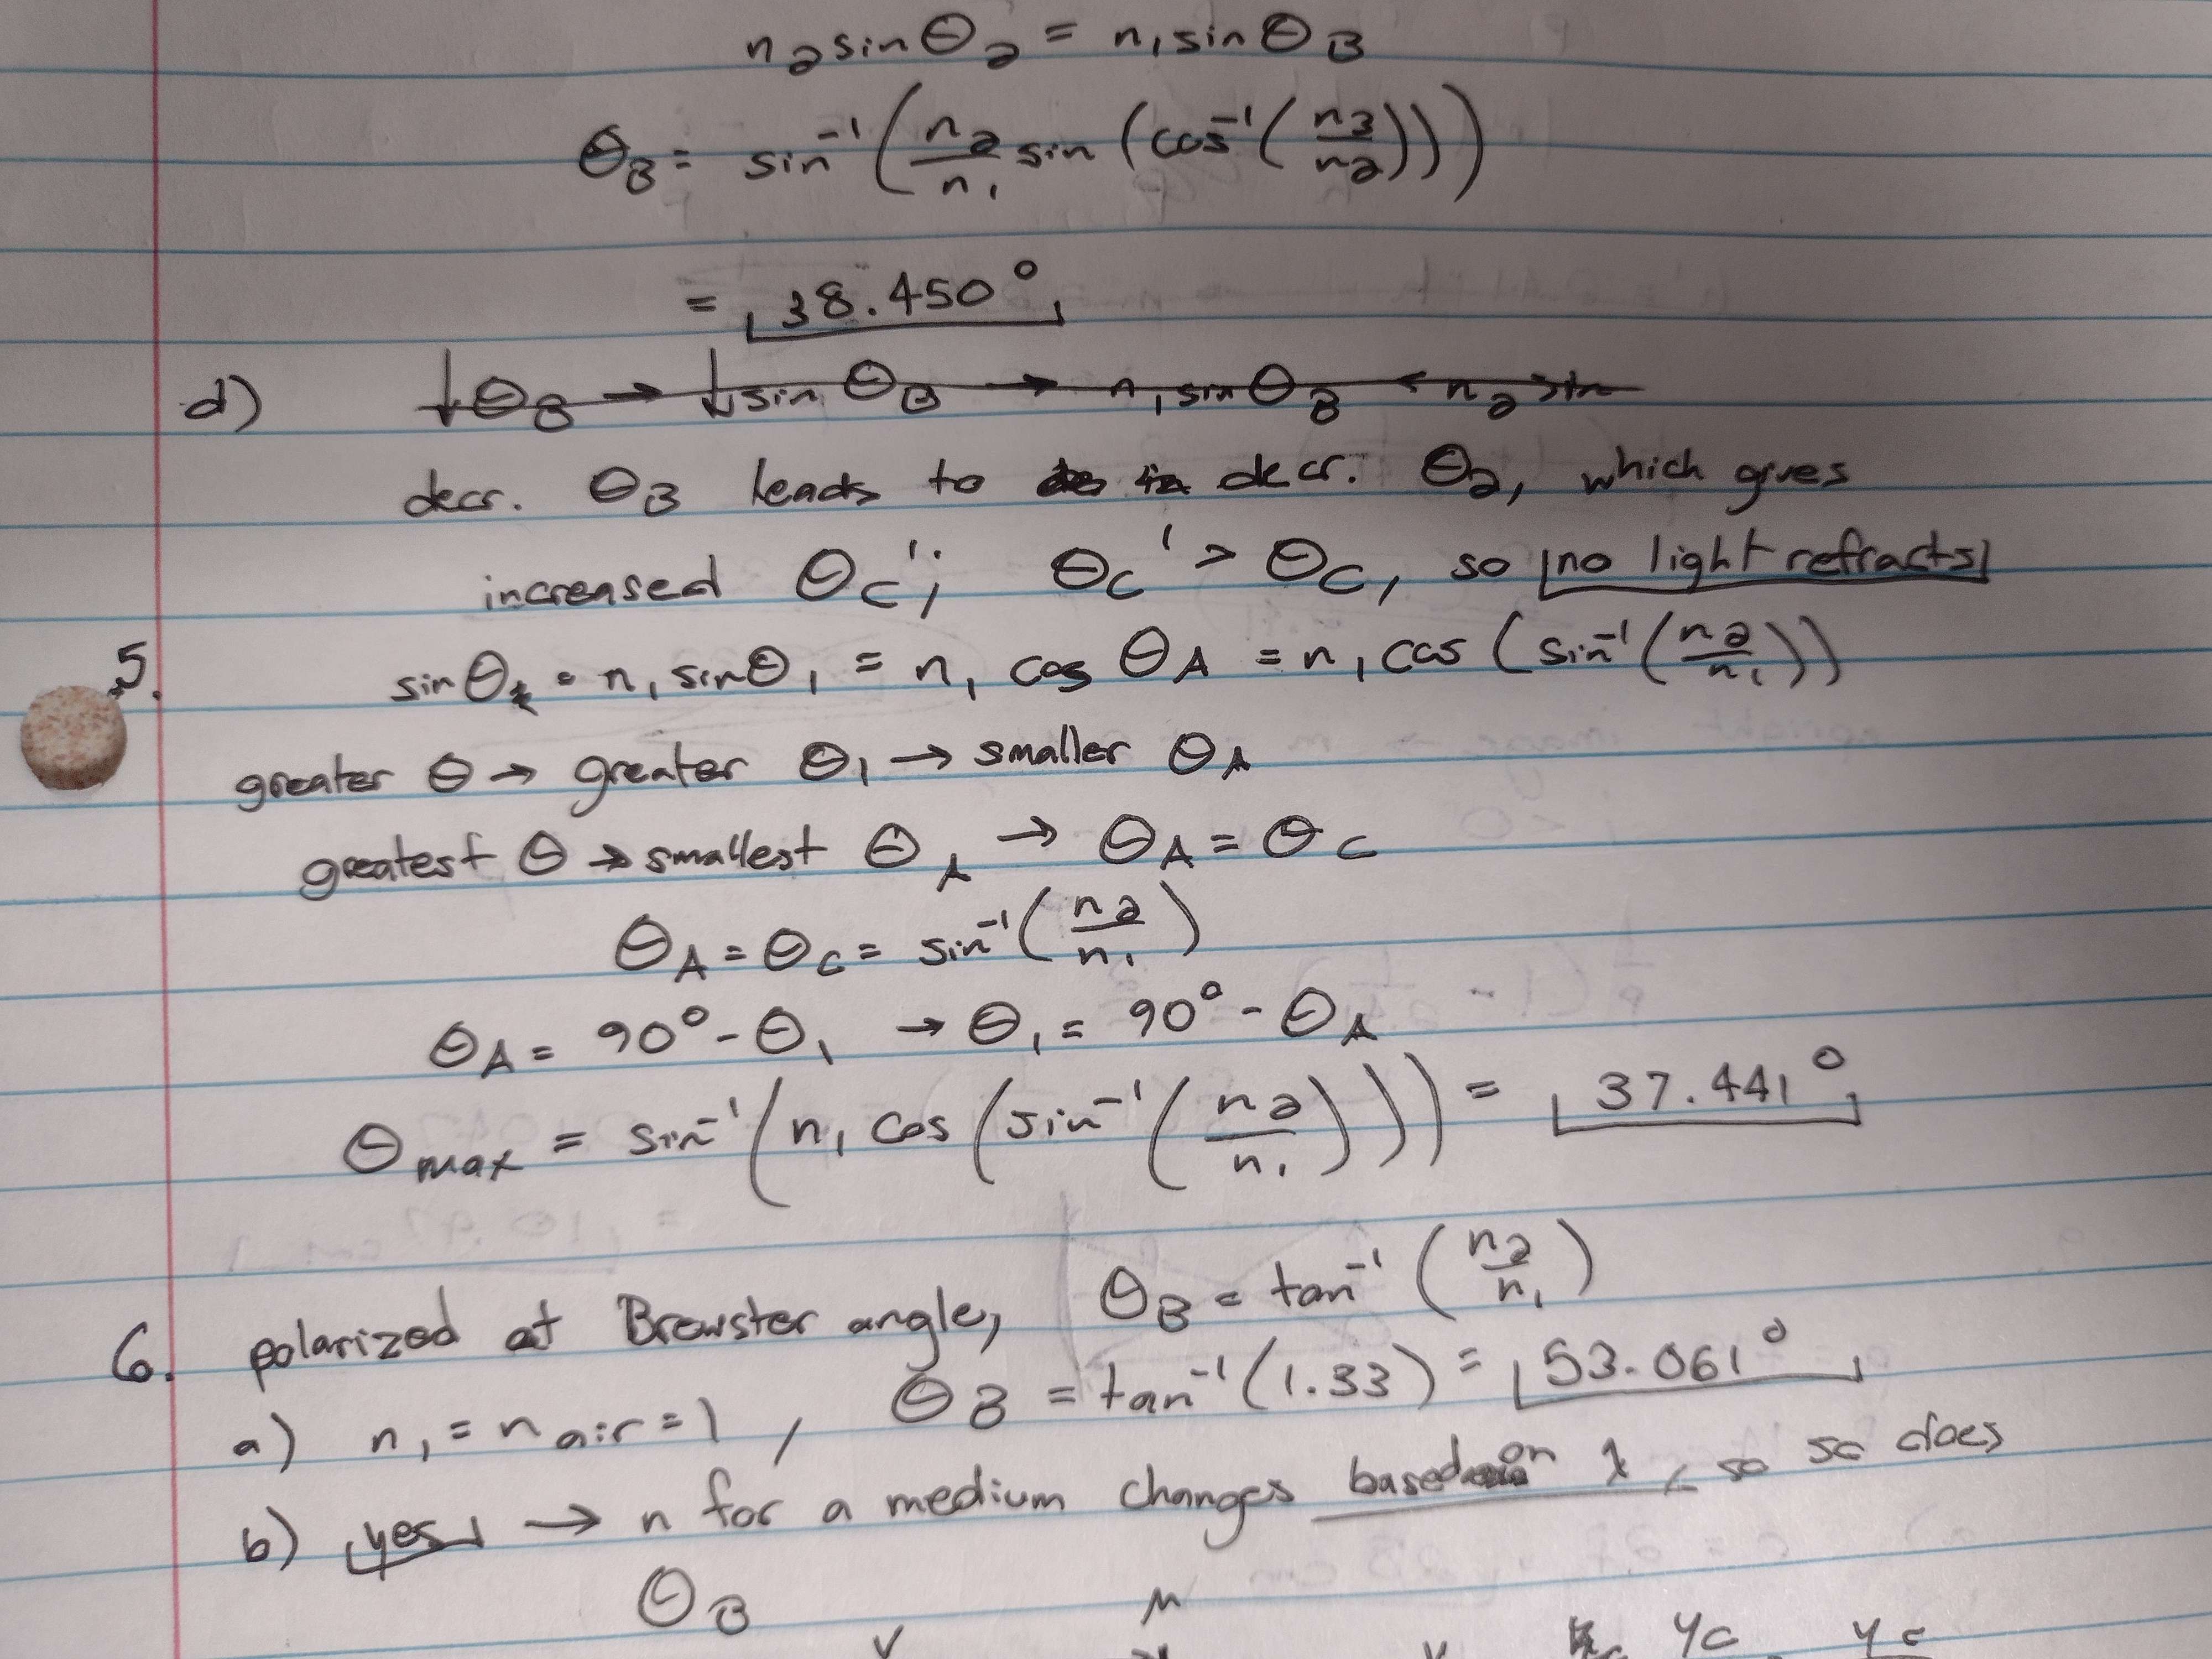 n₂ sin Θ₂ = n₁ sin Θ_B
Θ_B = sin⁻¹ ( n₂/n₁ sin ( cos⁻¹ ( n₃/n₂ )))
= 38.450°
d) ↓Θ_B → ↓sin Θ_B → n₁ sin Θ_B < n₂ sin
decr. Θ_B leads to decr. Θ₂, which gives
increased Θ_C'; Θ_C' > Θ_C, so no light refracts
5. sin Θ = n₁ sin Θ₁ = n₁ cos Θ_A = n₁ cos ( sin⁻¹ ( n₂/n₁ ))
greater Θ → greater Θ₁ → smaller Θ_A
greatest Θ → smallest Θ_A → Θ_A = Θ_C
Θ_A = Θ_C = sin⁻¹ ( n₂/n₁ )
Θ_A = 90° - Θ₁ → Θ₁ = 90° - Θ_A
Θ_max = sin⁻¹ ( n₁ cos ( sin⁻¹ ( n₂/n₁ ))) = 37.441°
6. polarized at Brewster angle, Θ_B = tan⁻¹ ( n₂/n₁ )
a) n₁ = n_air = 1, Θ_B = tan⁻¹ (1.33) = 53.061°
b) yes → n for a medium changes based on λ, so so does
Θ_B